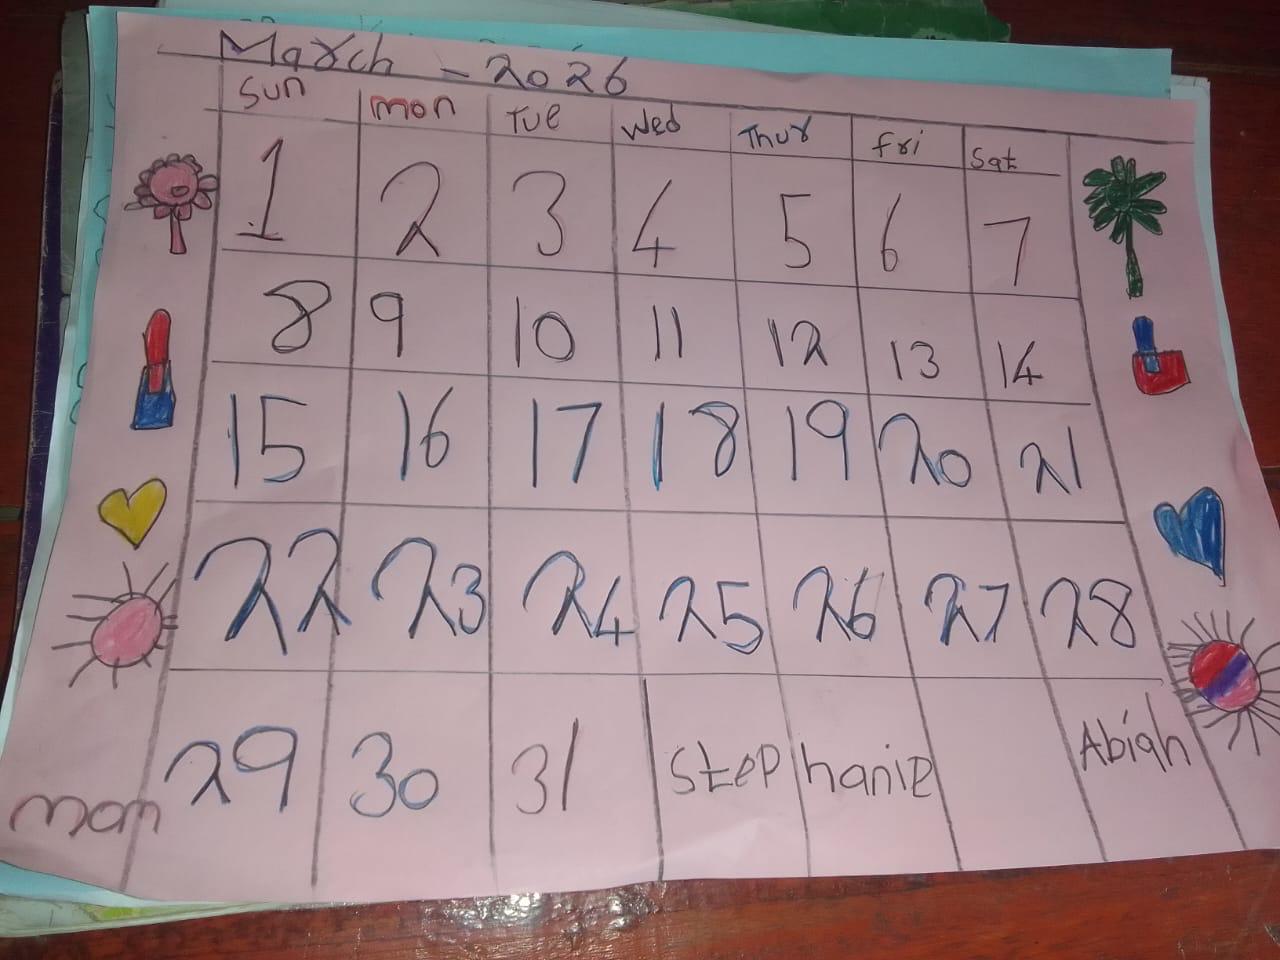 March - 2026
Sun mon Tue Wed Thur Fri Sat
1 2 3 4 5 6 7
8 9 10 11 12 13 14
15 16 17 18 19 20 21
22 23 24 25 26 27 28
29 30 31 Stephanie Abigh
mom